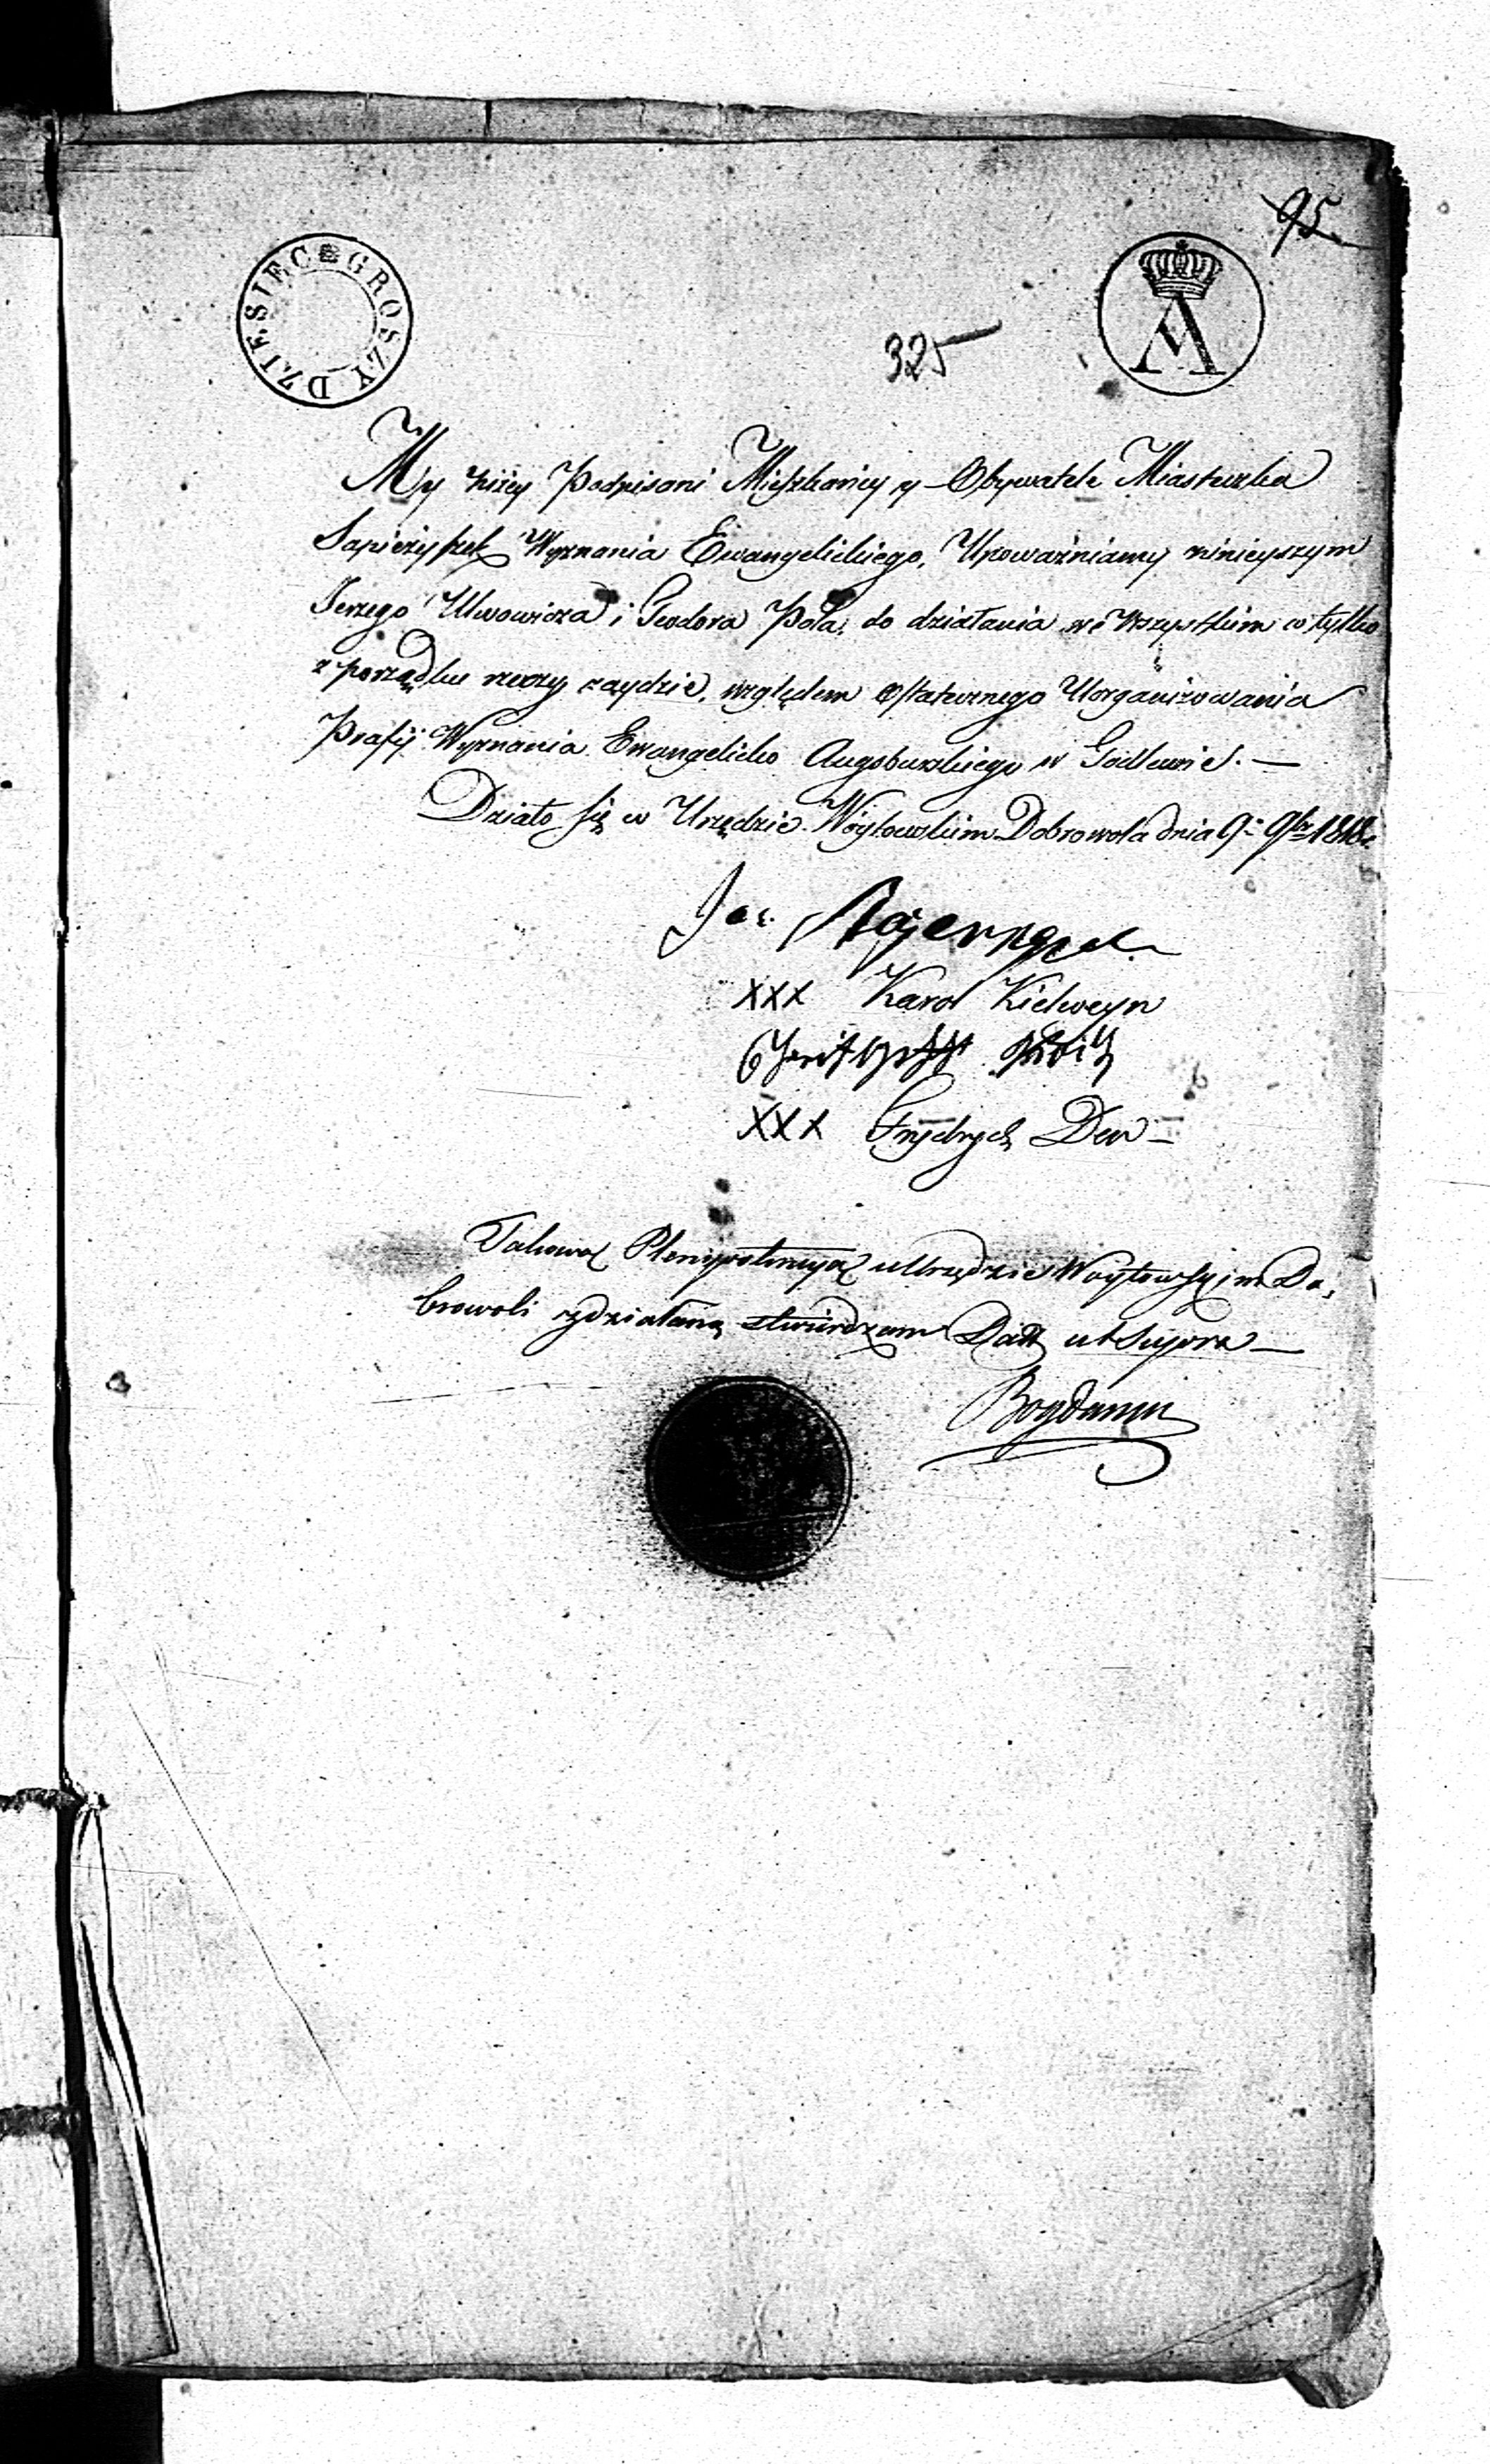 95
DZIESIĘC GROSZY
A
325
My niżey Podpisani Mieszkańcy y Obywatele Miasteczka
Sapieżyszek Wyznania Ewangelickiego, Upoważniamy ninieyszym
Jerzego Ulwowicza i Teodora Pola, do działania we wszystkim co tylko
z porządku rzeczy zaydzie, względem ostatecznego Uorganizowania
Prafij Wyznania Ewangelicko Augsburskiego w Godlewie. —
Działo się w Urzędzie Woytowskim Dobrowola dnia 9 9br 1818
Jan
XXX Karol Kielweyn
XXX Frydrych Dew —
Takową Plenipotencyą w Urzędzie Woytowskim Do,
browoli zdziałaną stwierdzam Datt ut supra —